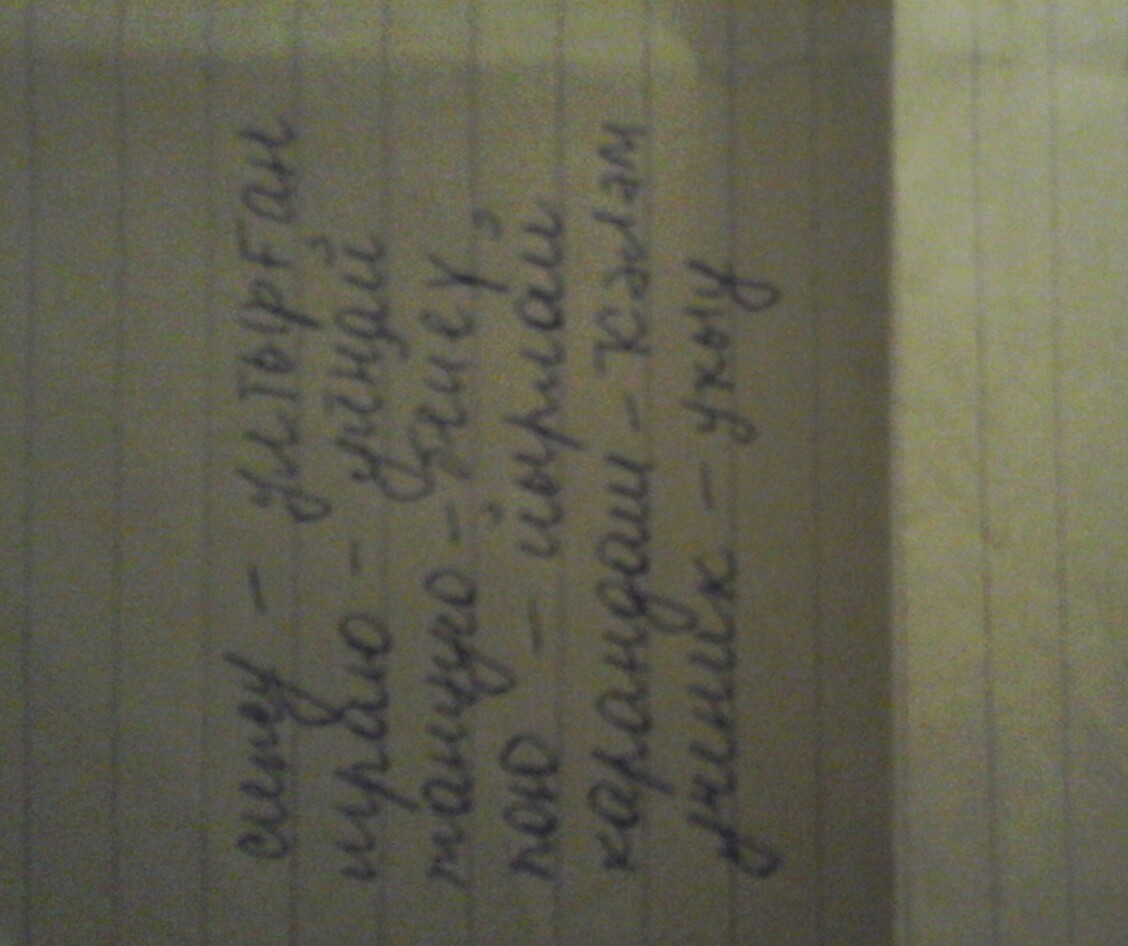 сижу - ултырған
играю - уйнай
танцую - бейеү
пою - йырлай
карандаш - кәләм
ученик - укыу